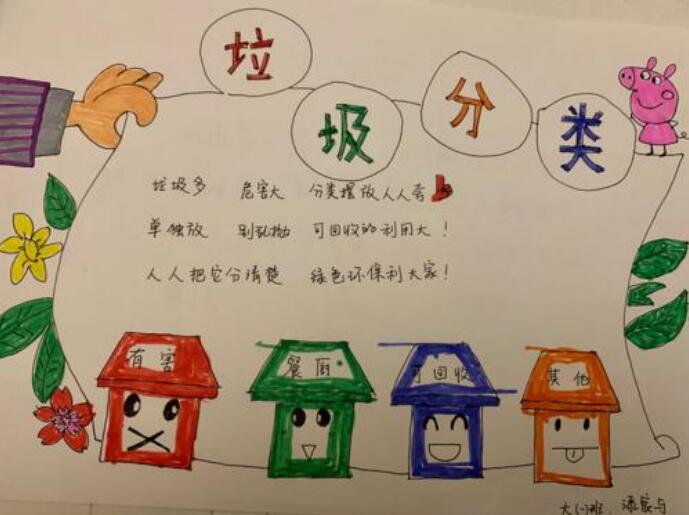 垃圾分类
垃圾多 危害大 分类摆放人人夸
单独放 别乱抛 可回收的利用大！
人人把它分清楚 绿色环保利大家！
有害
餐厨
可回收
其他
大(一)班